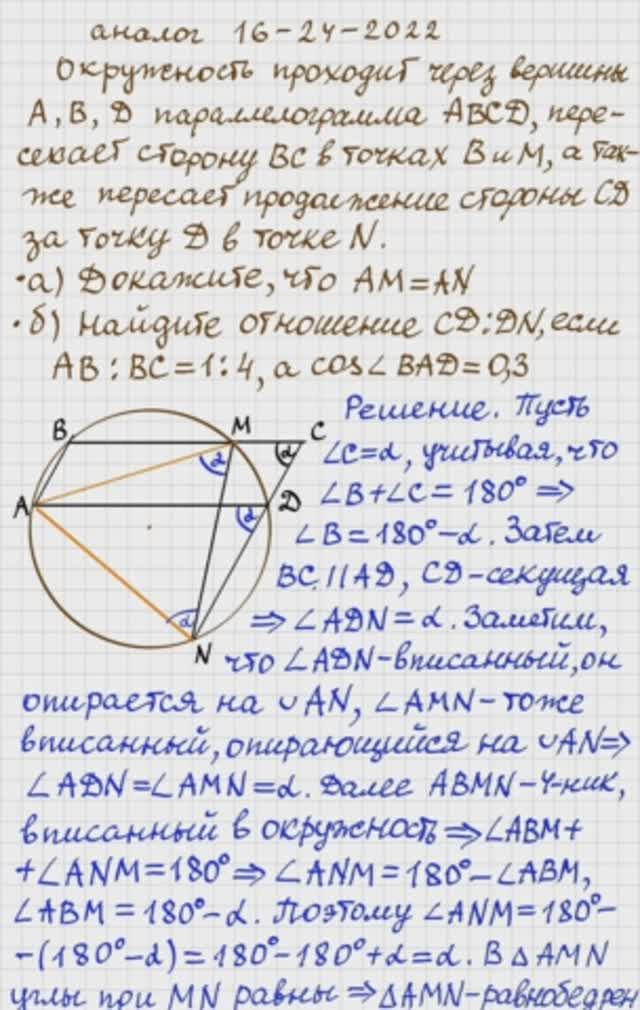 аналог 16-24-2022
Окружность проходит через вершины
A, B, D параллелограмма ABCD, пере-
секает сторону BC в точках B и M, а так-
же пересает продолжение стороны CD
за точку D в точке N.
·а) Докажите, что AM=AN
·б) Найдите отношение CD:DN, если
AB:BC=1:4, а cos∠BAD=0,3
Решение. Пусть
∠C=α, учитывая, что
∠B+∠C=180° ⇒
∠B=180°-α. Затем
BC||AD, CD-секущая
⇒ ∠ADN=α. Заметим,
что ∠ADN-вписанный, он
опирается на ∪AN, ∠AMN-тоже
вписанный, опирающийся на ∪AN⇒
∠ADN=∠AMN=α. Далее ABMN-4-ник,
вписанный в окружность⇒∠ABM+
+∠ANM=180°⇒∠ANM=180°-∠ABM,
∠ABM=180°-α. Поэтому ∠ANM=180°-
-(180°-α)=180°-180°+α=α. В ΔAMN
углы при MN равны ⇒ΔAMN-равнобедрен
B
M
C
α
α
A
D
α
α
N